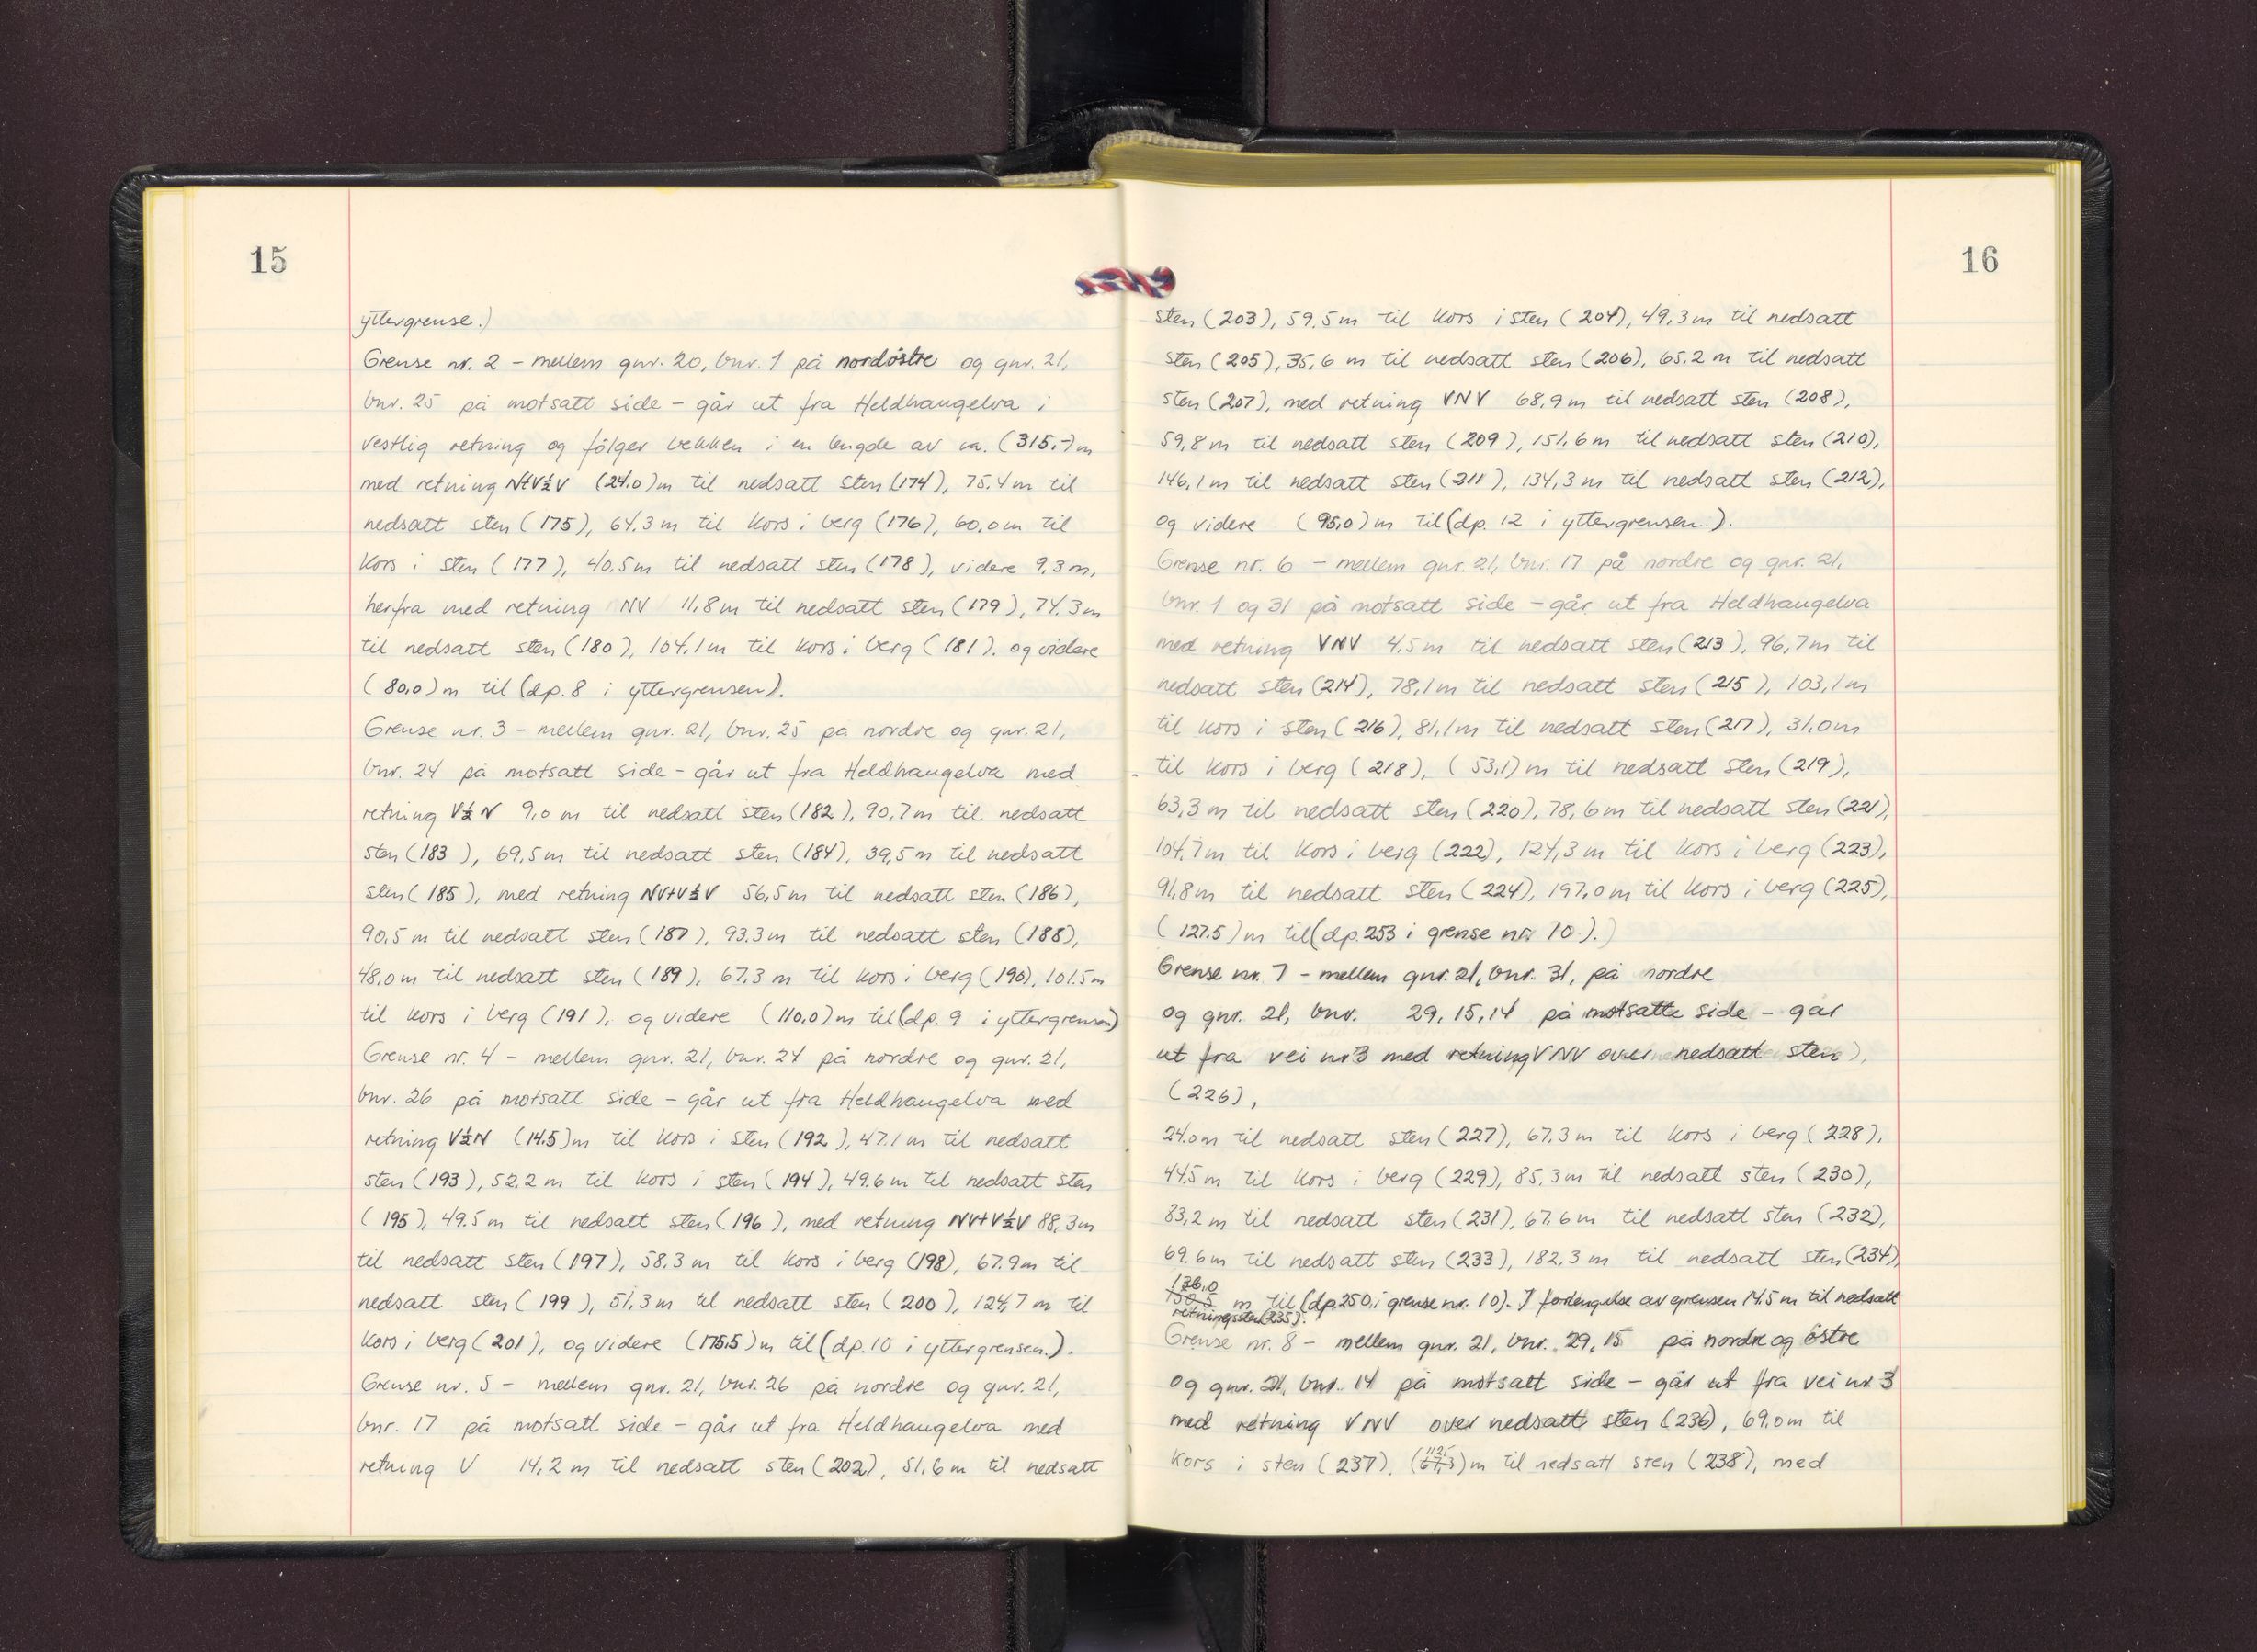 15
yttergrense.)
Grense nr. 2 - mellem gnr. 20, bnr. 1 på nordöstre og gnr. 21,
bnr. 25 på motsatt side - går ut fra Heldhaugelva i
vestlig retning og fölger bekken i en lengde av ca. (315,-)m
med retning N+V½V (24.0)m til nedsatt sten (174), 75,4m til
nedsatt sten (175), 64,3m til kors i berg (176), 60,0m til
kors i sten (177), 40,5m til nedsatt sten (178), videre 9,3m,
herfra med retning NV 11,8m til nedsatt sten (179), 74.3m
til nedsatt sten (180), 104,1m til kors i berg (181). og videre
(80,0)m til (dp. 8 i yttergrensen).
Grense nr. 3 - mellem gnr. 21, bnr. 25 på nordre og gnr. 21,
bnr. 24 på motsatt side - går ut fra Heldhaugelva med
retning V½N 9,0 m til nedsatt sten (182), 90,7m til nedsatt
sten (183), 69,5m til nedsatt sten (184), 39,5m til nedsatt
sten (185), med retning NV+V½V 56,5m til nedsatt sten (186),
90,5 m til nedsatt sten (187), 93.3m til nedsatt sten (188),
48,0m til nedsatt sten (189), 67,3 m til kors i berg (190), 101.5m
til kors i berg (191), og videre (110,0)m til (dp. 9 i yttergrensen)
Grense nr. 4 - mellem gnr. 21, bnr. 24 på nordre og gnr. 21,
bnr. 26 på motsatt side - går ut fra Heldhaugelva med
retning V½N (14.5)m til kors i sten (192), 47.1m til nedsatt
sten (193), 52,2 m til kors i sten (194), 49.6m til nedsatt sten
(195), 49.5m til nedsatt sten (196), med retning NV+V½V 88,3m
til nedsatt sten (197), 58.3m til kors i berg (198), 67.9m til
nedsatt sten (199), 51,3m til nedsatt sten (200), 124,7 m til
kors i berg (201), og videre (175,5)m til (dp. 10 i yttergrensen.).
Grense nr. 5 - mellem gnr. 21, bnr. 26 på nordre og gnr. 21,
bnr. 17 på motsatt side - går ut fra Heldhaugelva med
retning V 14,2 m til nedsatt sten (202), 51,6m til nedsatt
16
sten (203), 59,5m til kors i sten (204), 49,3m til nedsatt
sten (205), 35,6 m til nedsatt sten (206), 65,2 m til nedsatt
sten (207), med retning VNV 68,9m til nedsatt sten (208),
59,8m til nedsatt sten (209), 151,6m til nedsatt sten (210),
146,1m til nedsatt sten (211), 134,3m til nedsatt sten (212),
og videre (95,0)m til (dp. 12 i yttergrensen.).
Grense nr. 6 - mellem gnr. 21, bnr. 17 på nordre og gnr. 21,
bnr. 1 og 31 på motsatt side - går ut fra Heldhaugelva
med retning VNV 4,5m til nedsatt sten (213), 96,7m til
nedsatt sten (214), 78,1m til nedsatt sten (215), 103,1m
til kors i sten (216), 81,1m til nedsatt sten (217), 31,0m
til kors i berg (218), (53,1)m til nedsatt sten (219),
63,3m til nedsatt sten (220), 78,6m til nedsatt sten (221),
104,7m til kors i berg (222), 124,3m til kors i berg (223),
91,8m til nedsatt sten (224), 197,0m til kors i berg (225),
(127.5)m til (dp. 253 i grense nr. 10.).)
Grense nr. 7 - mellem gnr. 21, bnr. 31, på nordre
og gnr. 21, bnr. 29, 15, 14 på motsatte side - går
ut fra vei nr 3 med retning VNV over nedsatt sten
(226),
24.0m til nedsatt sten (227), 67.3m til kors i berg (228),
44,5m til kors i berg (229), 85,3m til nedsatt sten (230),
83,2m til nedsatt sten (231), 67,6m til nedsatt sten (232),
69.6m til nedsatt sten (233), 182,3m til nedsatt sten (234),
136,0
m til (dp. 250, i grense nr. 10). I forlengelse av grensen 14.5 m til nedsatt
retningssten (235).
Grense nr. 8 - mellem gnr. 21, bnr. 29, 15 på nordre og östre
og gnr. 21, bnr. 14 på motsatt side - går ut fra vei nr. 3
med retning VNV over nedsatt sten (236), 69,0m til
kors i sten (237), ( )m til nedsatt sten (238), med